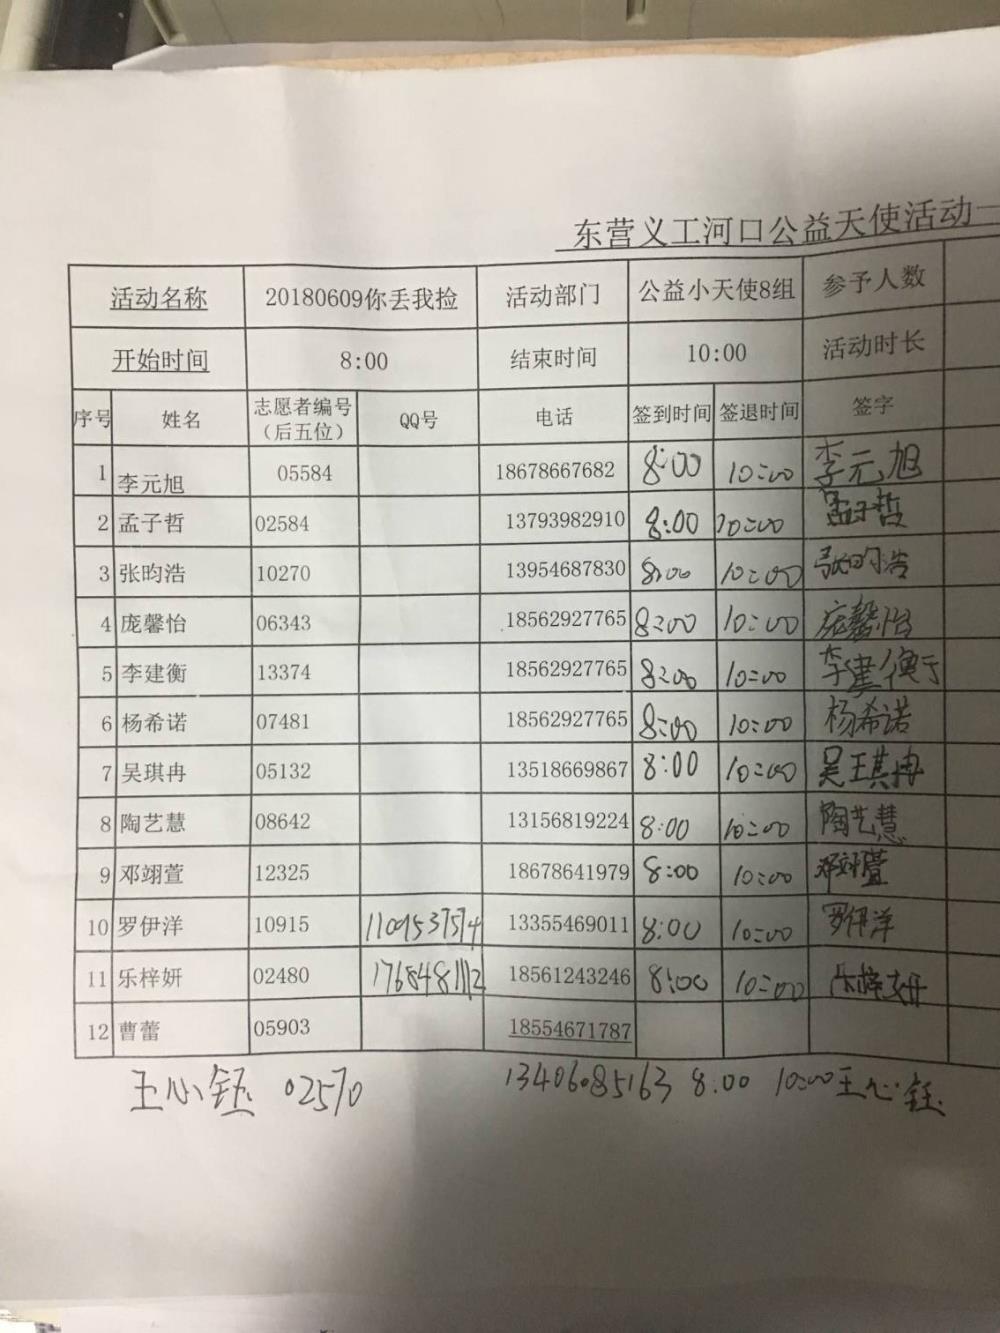 东营义工河口公益天使活动一
活动名称 20180609你丢我捡 活动部门 公益小天使8组 参予人数
开始时间 8:00 结束时间 10:00 活动时长
序号 姓名 志愿者编号（后五位） QQ号 电话 签到时间 签退时间 签字
1 李元旭 05584 18678667682 8:00 10:00 李元旭
2 孟子哲 02584 13793982910 8:00 10:00 孟子哲
3 张昀浩 10270 13954687830 8:00 10:00 张昀浩
4 庞馨怡 06343 18562927765 8:00 10:00 庞馨怡
5 李建衡 13374 18562927765 8:00 10:00 李建衡
6 杨希诺 07481 18562927765 8:00 10:00 杨希诺
7 吴琪冉 05132 13518669867 8:00 10:00 吴琪冉
8 陶艺慧 08642 13156819224 8:00 10:00 陶艺慧
9 邓翊萱 12325 18678641979 8:00 10:00 邓翊萱
10 罗伊洋 10915 13355469011 8:00 10:00 罗伊洋
11 乐梓妍 02480 18561243246 8:00 10:00 乐梓妍
12 曹蕾 05903 18554671787
王心钰 02570 13406085163 8:00 10:00 王心钰